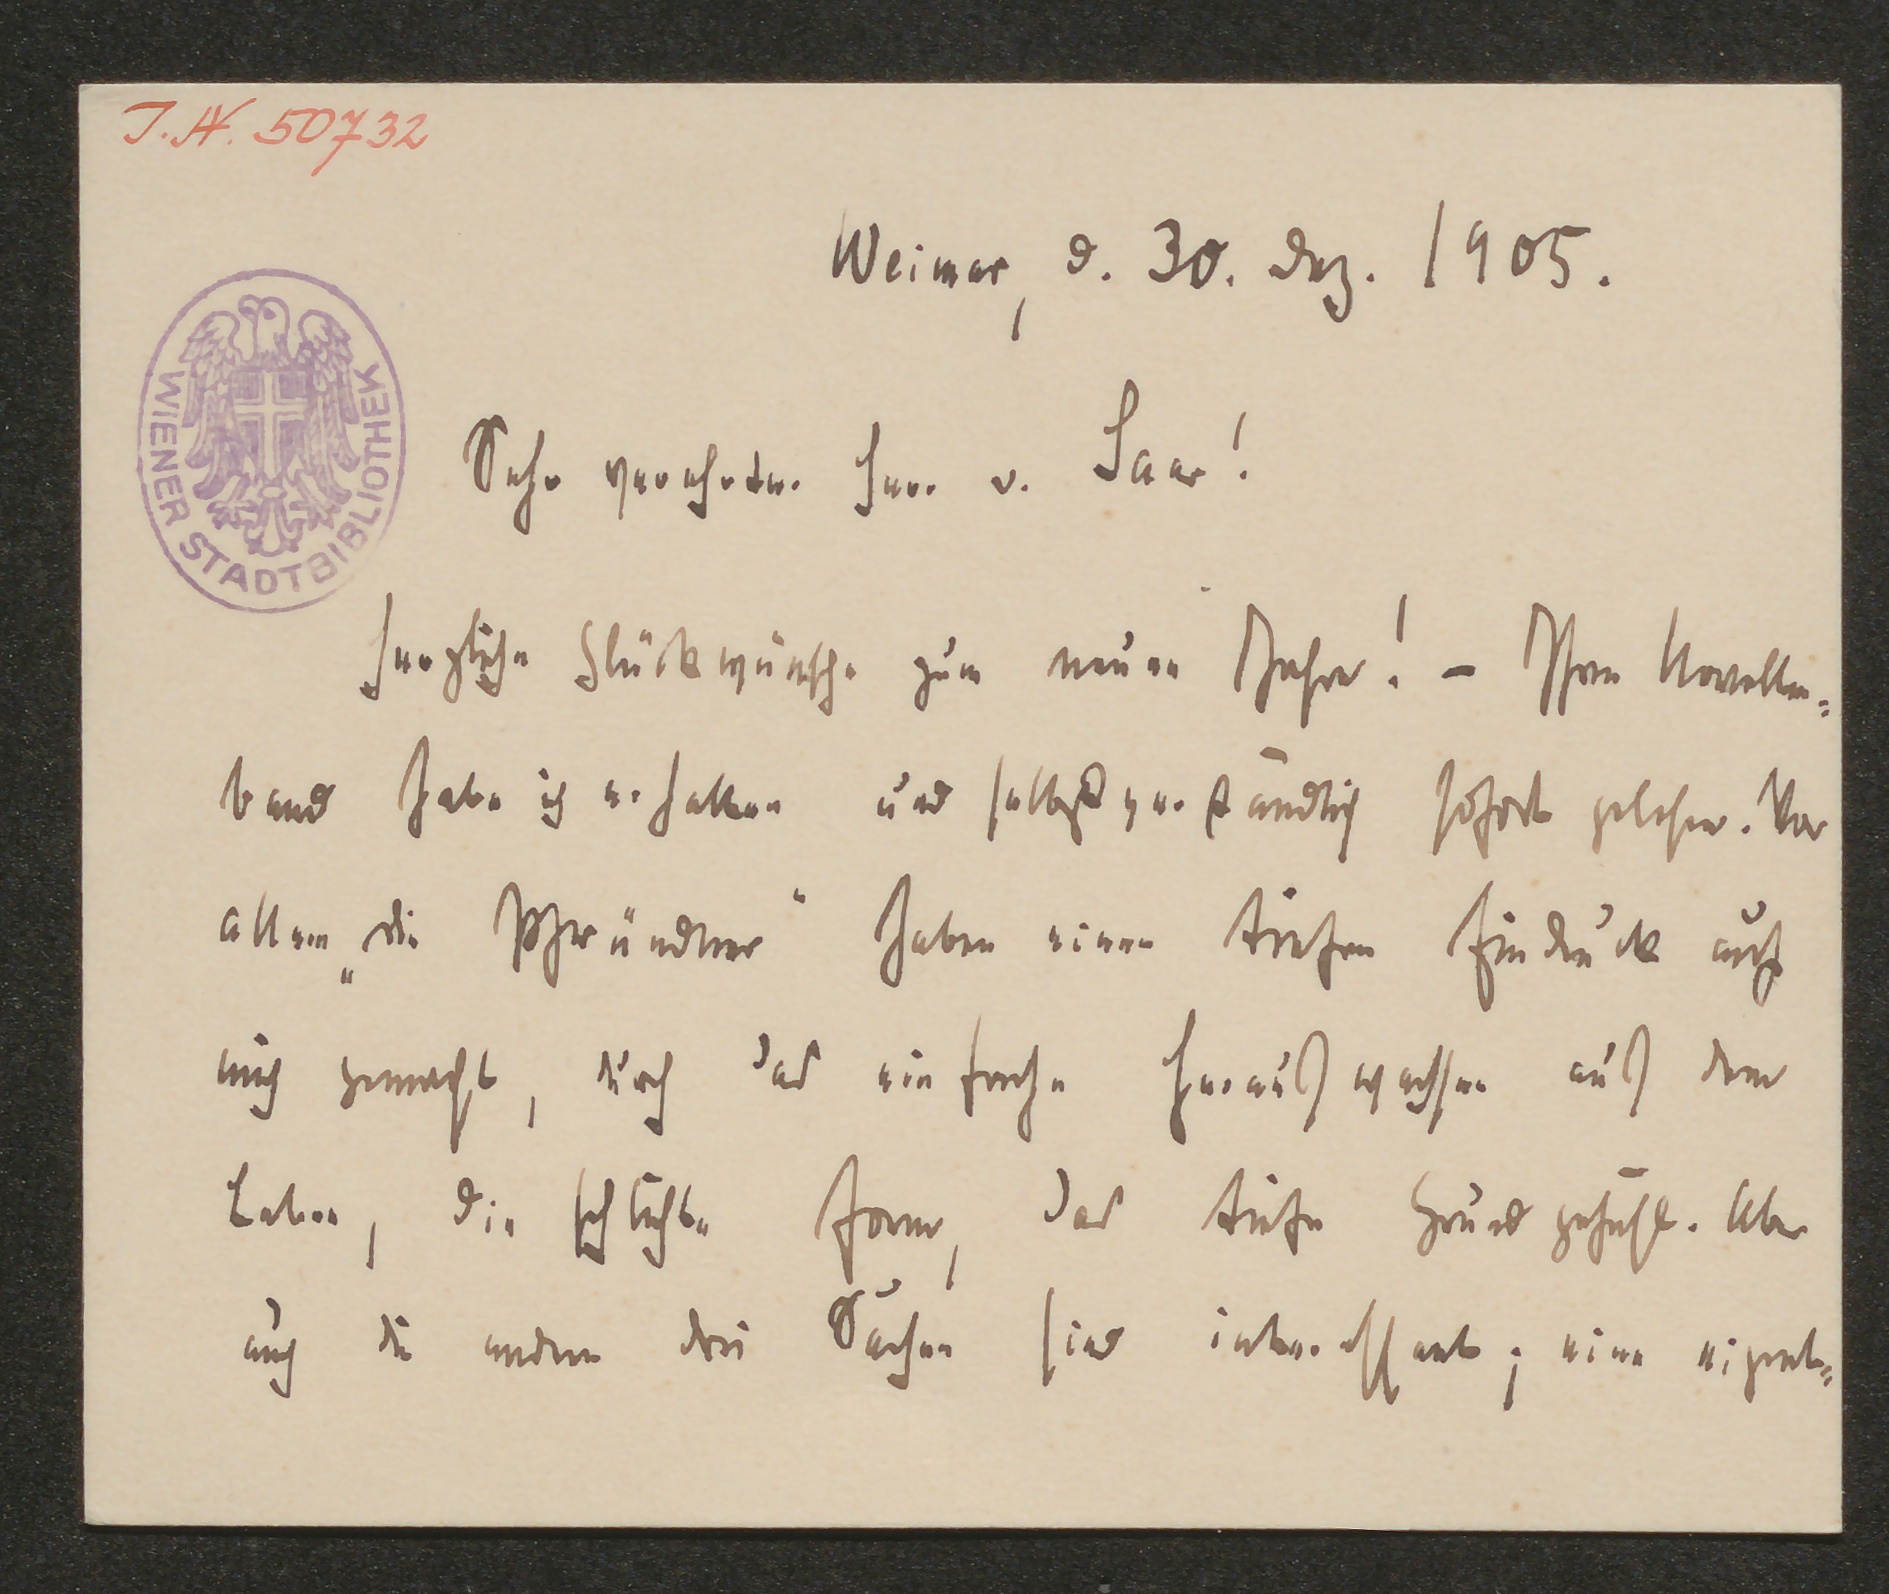 I.N. 50732
Weimar, d. 30. Dez. 1905.
WIENER STADTBIBLIOTHEK
Sehr verehrter Herr v. Saar!
Herzliche Glückwünsche zum neuen Jahre! – Ihren Novellen-
band habe ich erhalten und selbstverständlich sofort gelesen. Vor
allem „die Pfründner“ haben einen tiefen Eindruck auf
mich gemacht, durch das einfache Herauswachsen aus dem
Leben, die schlichte Form, das tiefe Grundgefühl. Aber
auch die andern drei Sachen sind interessant; eine eigent-